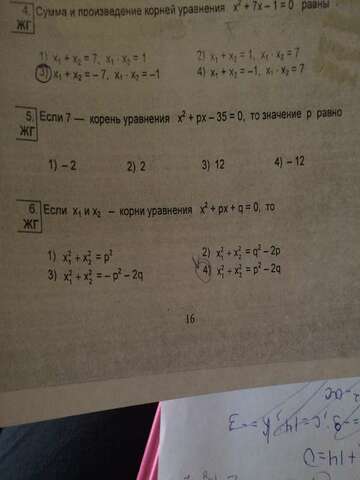 4. Сумма и произведение корней уравнения x² + 7x − 1 = 0 равны
ЖГ
1) x₁ + x₂ = 7, x₁ · x₂ = 1 2) x₁ + x₂ = 1, x₁ · x₂ = 7
3) x₁ + x₂ = − 7, x₁ · x₂ = −1 4) x₁ + x₂ = −1, x₁ · x₂ = 7
5. Если 7 — корень уравнения x² + px − 35 = 0, то значение p равно
ЖГ
1) − 2 2) 2 3) 12 4) − 12
6. Если x₁ и x₂ – корни уравнения x² + px + q = 0, то
ЖГ
1) x₁² + x₂² = p² 2) x₁² + x₂² = q² − 2p
3) x₁² + x₂² = − p² − 2q 4) x₁² + x₂² = p² − 2q
16